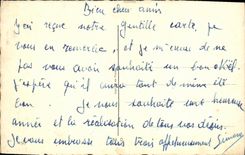 Bien chers amis
J'ai reçue notre Gentille carte, je
vous en remercie, et je m'excuse de ne
pas vous avoir souhaité un bon Noël.
J'espère qu'il aura tout de même été
bon. Je vous souhaite une heureuse
année et la réalisation de tous vos désirs.
Je vous embrasse tous trois affectueusement Simone